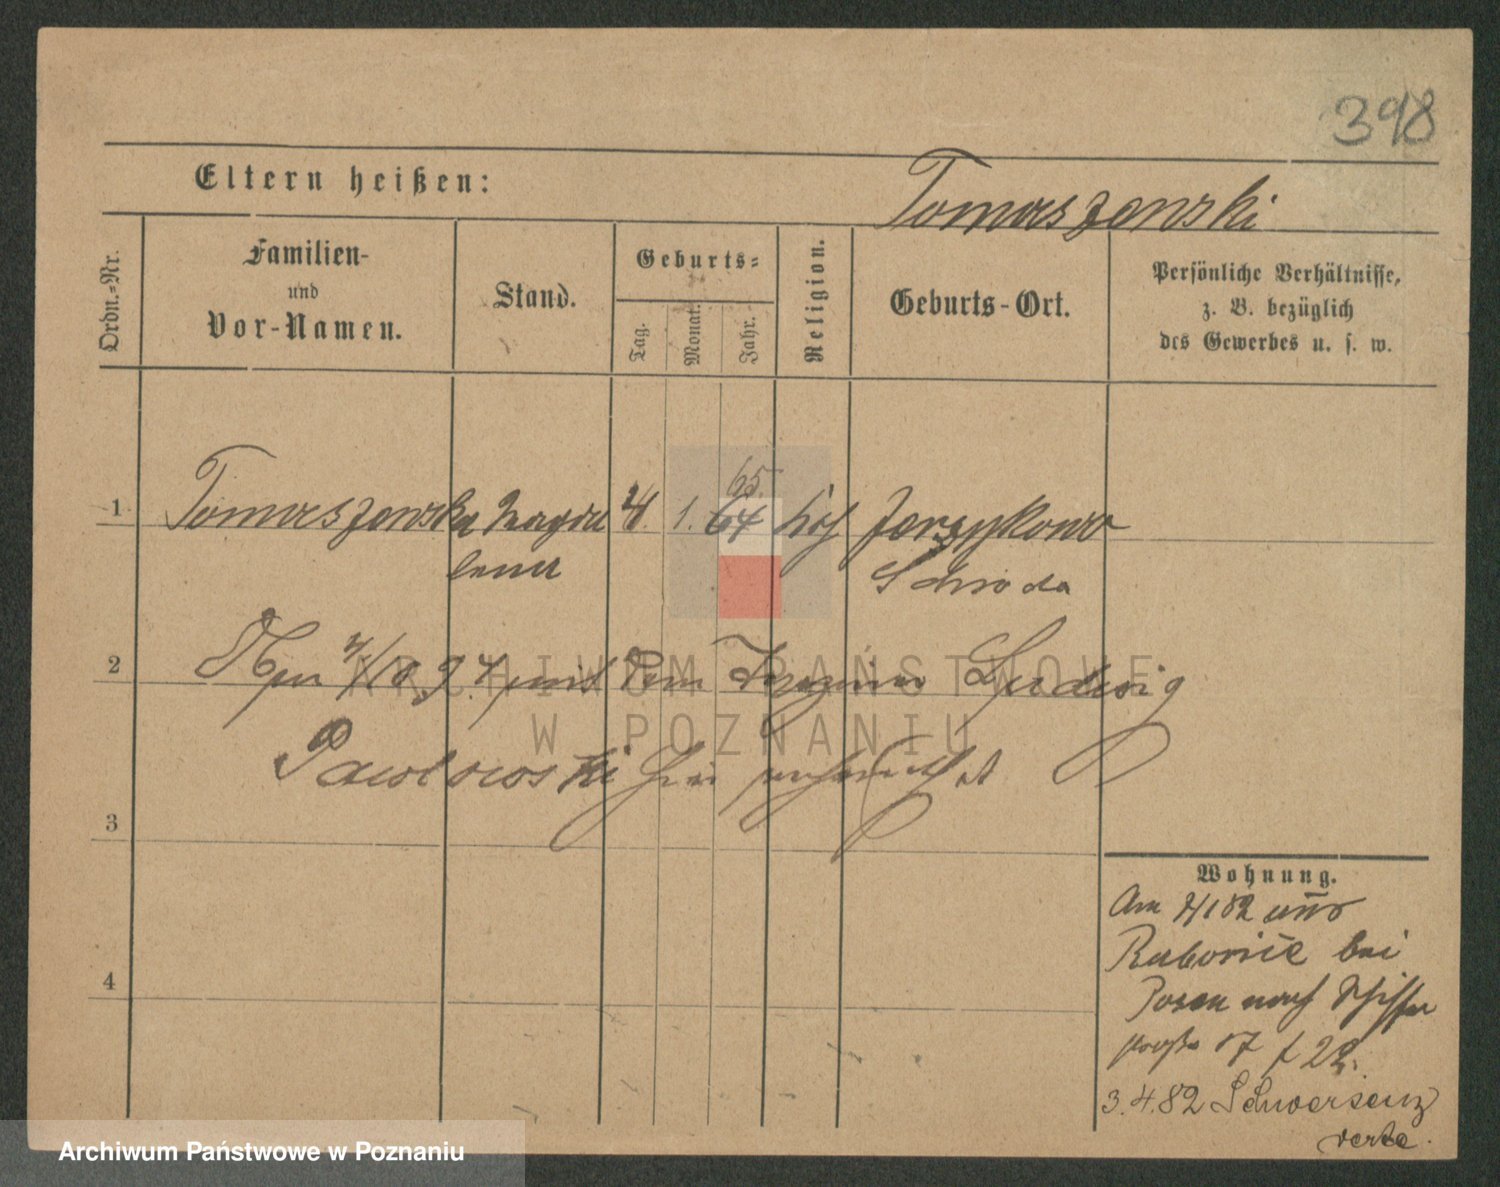 398
Eltern heißen:
Tomaszewski
Ordn.-Nr.
Familien-
und
Vor-Namen.
Stand.
Geburts-
Tag.
Monat.
Jahr.
Religion.
Geburts-Ort.
Persönliche Verhältnisse,
z. B. bezüglich
des Gewerbes u. s. w.
65.
1 Tomaszewska Magda 4. 1. 64 kath Jerzykowo
lena Schroda
2 mit dem Ludwig
ARCHIWUM PAŃSTWOWE
W POZNANIU
Pawlowski verheirathet
3
4
Wohnung.
Am 2/1 82 aus
bei
Posen nach Schiffer
straße 17 f 22.
3.4.82 Schwersenz
verte.
Archiwum Państwowe w Poznaniu